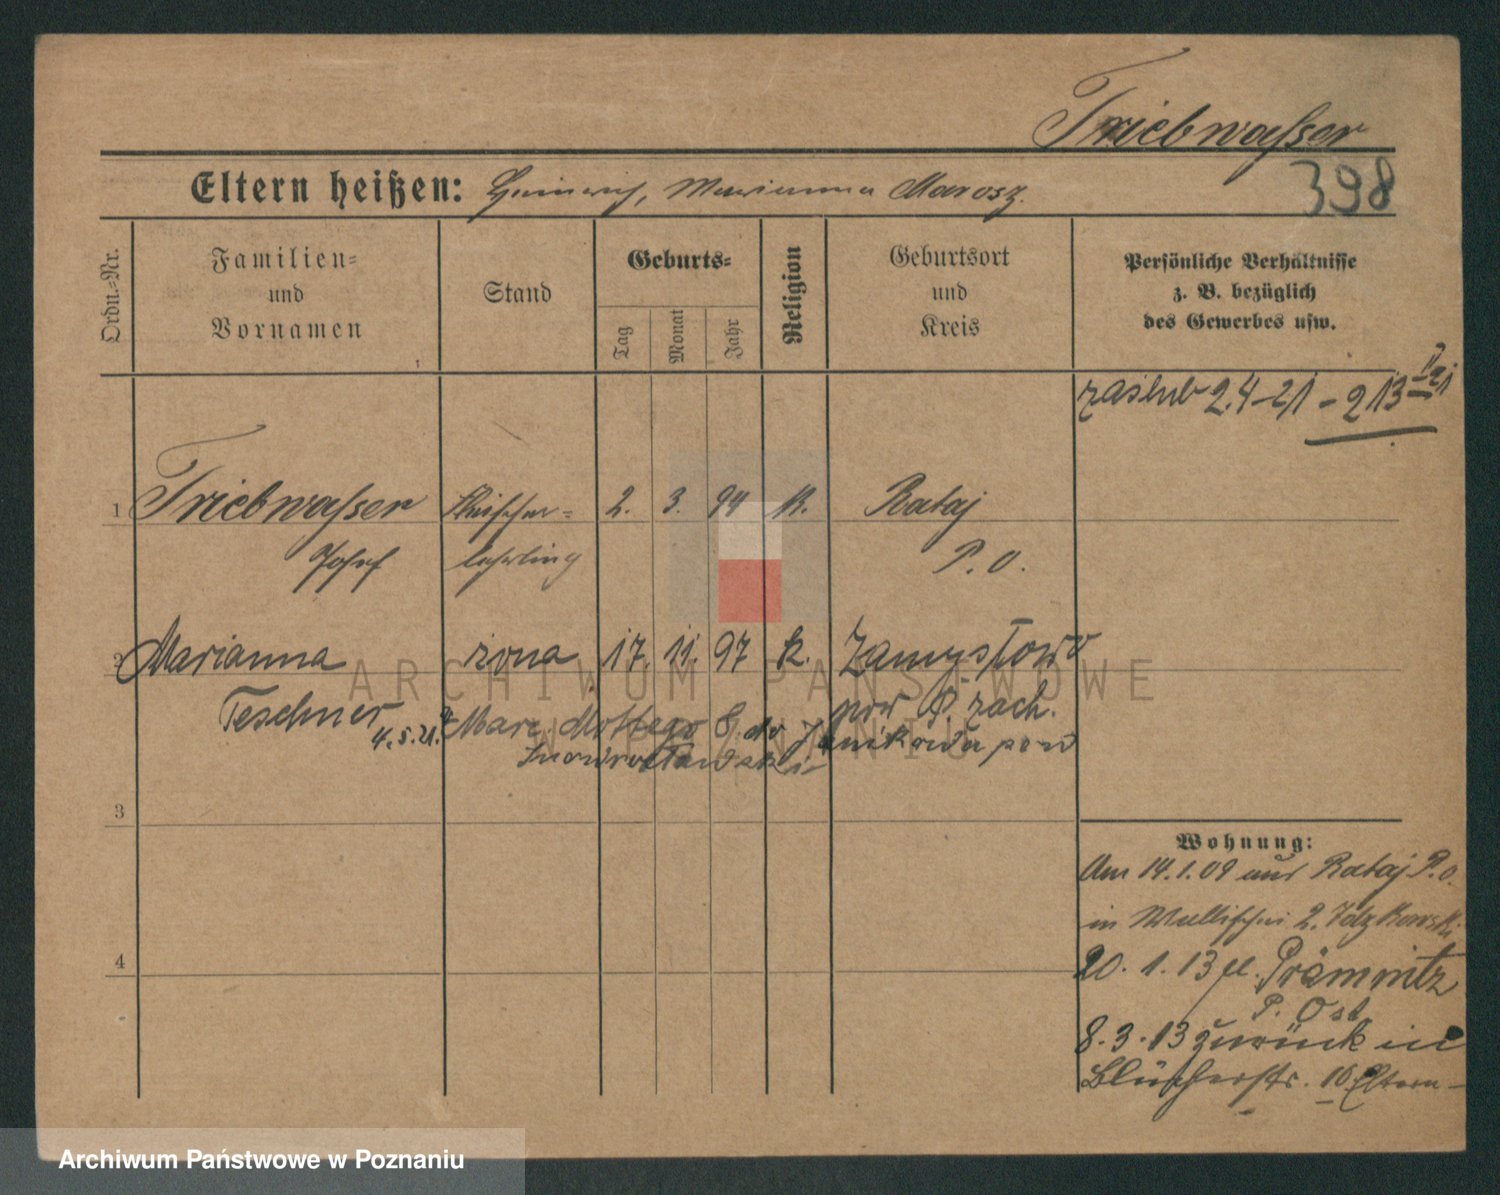 Triebwaßer
398
Eltern heißen: Heinrich, Marianna Marosz.
Ordn.-Nr.
Familien-
und
Vornamen
Stand
Geburts-
Tag
Monat
Jahr
Religion
Geburtsort
und
Kreis
Persönliche Verhältnisse
z. B. bezüglich
des Gewerbes usw.
zaślub 2.4-21 - 213
1 Triebwaßer Fleischer- 2. 3. 94 k. Rataj
Josef lehrling P. O.
2 Marianna żona 17. 11. 97 k. Zamysłowo
Teschner pow P. zach.
4.5.21. Marc. Mottego do Janikowa pow
Inowrocławski
3
4
Wohnung:
Am 14.1.09 aus Rataj P.O.
in Wallischei 2.
20. 1. 13 Prämnitz
P. Ost
8. 3. 13 zurück in
Blücherstr. 10 Eltern-
ARCHIWUM PAŃSTWOWE
W POZNANIU
Archiwum Państwowe w Poznaniu